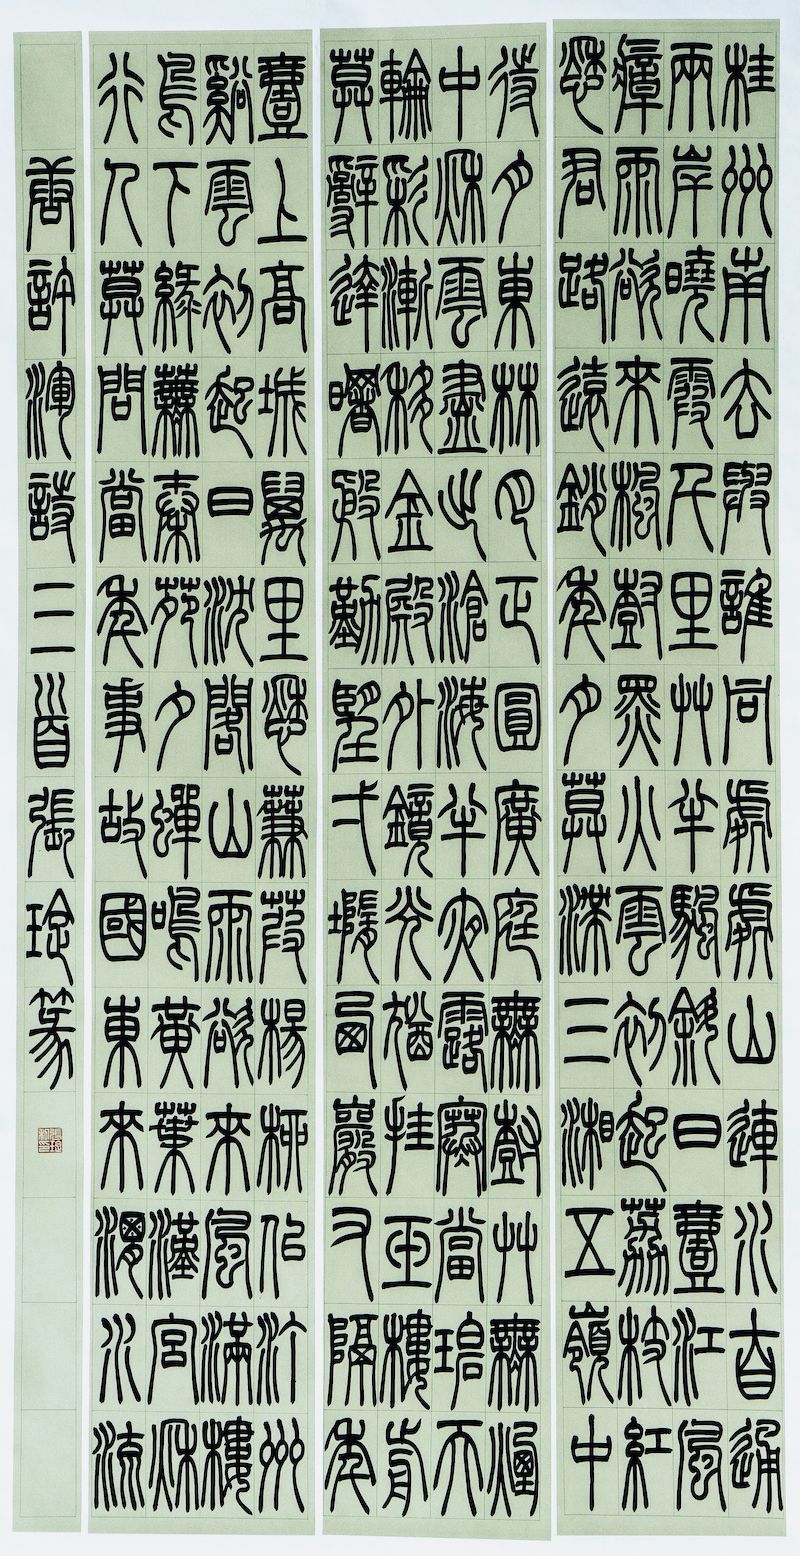 桂州南去與誰同處處山連水自通
兩岸曉霞千里艸半帆斜日壹江風
瘴雨欲來楓樹黑火雲初起荔枝紅
愁君路遠銷年月莫滯三湘五嶺中
待月東林月正圓廣庭無樹艸無煙
中秋雲盡出滄海半夜露寒當碧天
輪彩漸移金殿外鏡光猶挂玉樓前
莫辭達曙殷勤望弌墮西巖又隔年
壹上高城萬里愁蒹葭楊柳似汀州
谿雲初起日沈閣山雨欲來風滿樓
鳥下綠蕪秦苑夕蟬鳴黃葉漢宮秋
行人莫問當年事故國東來渭水流
唐許渾詩三首張篆